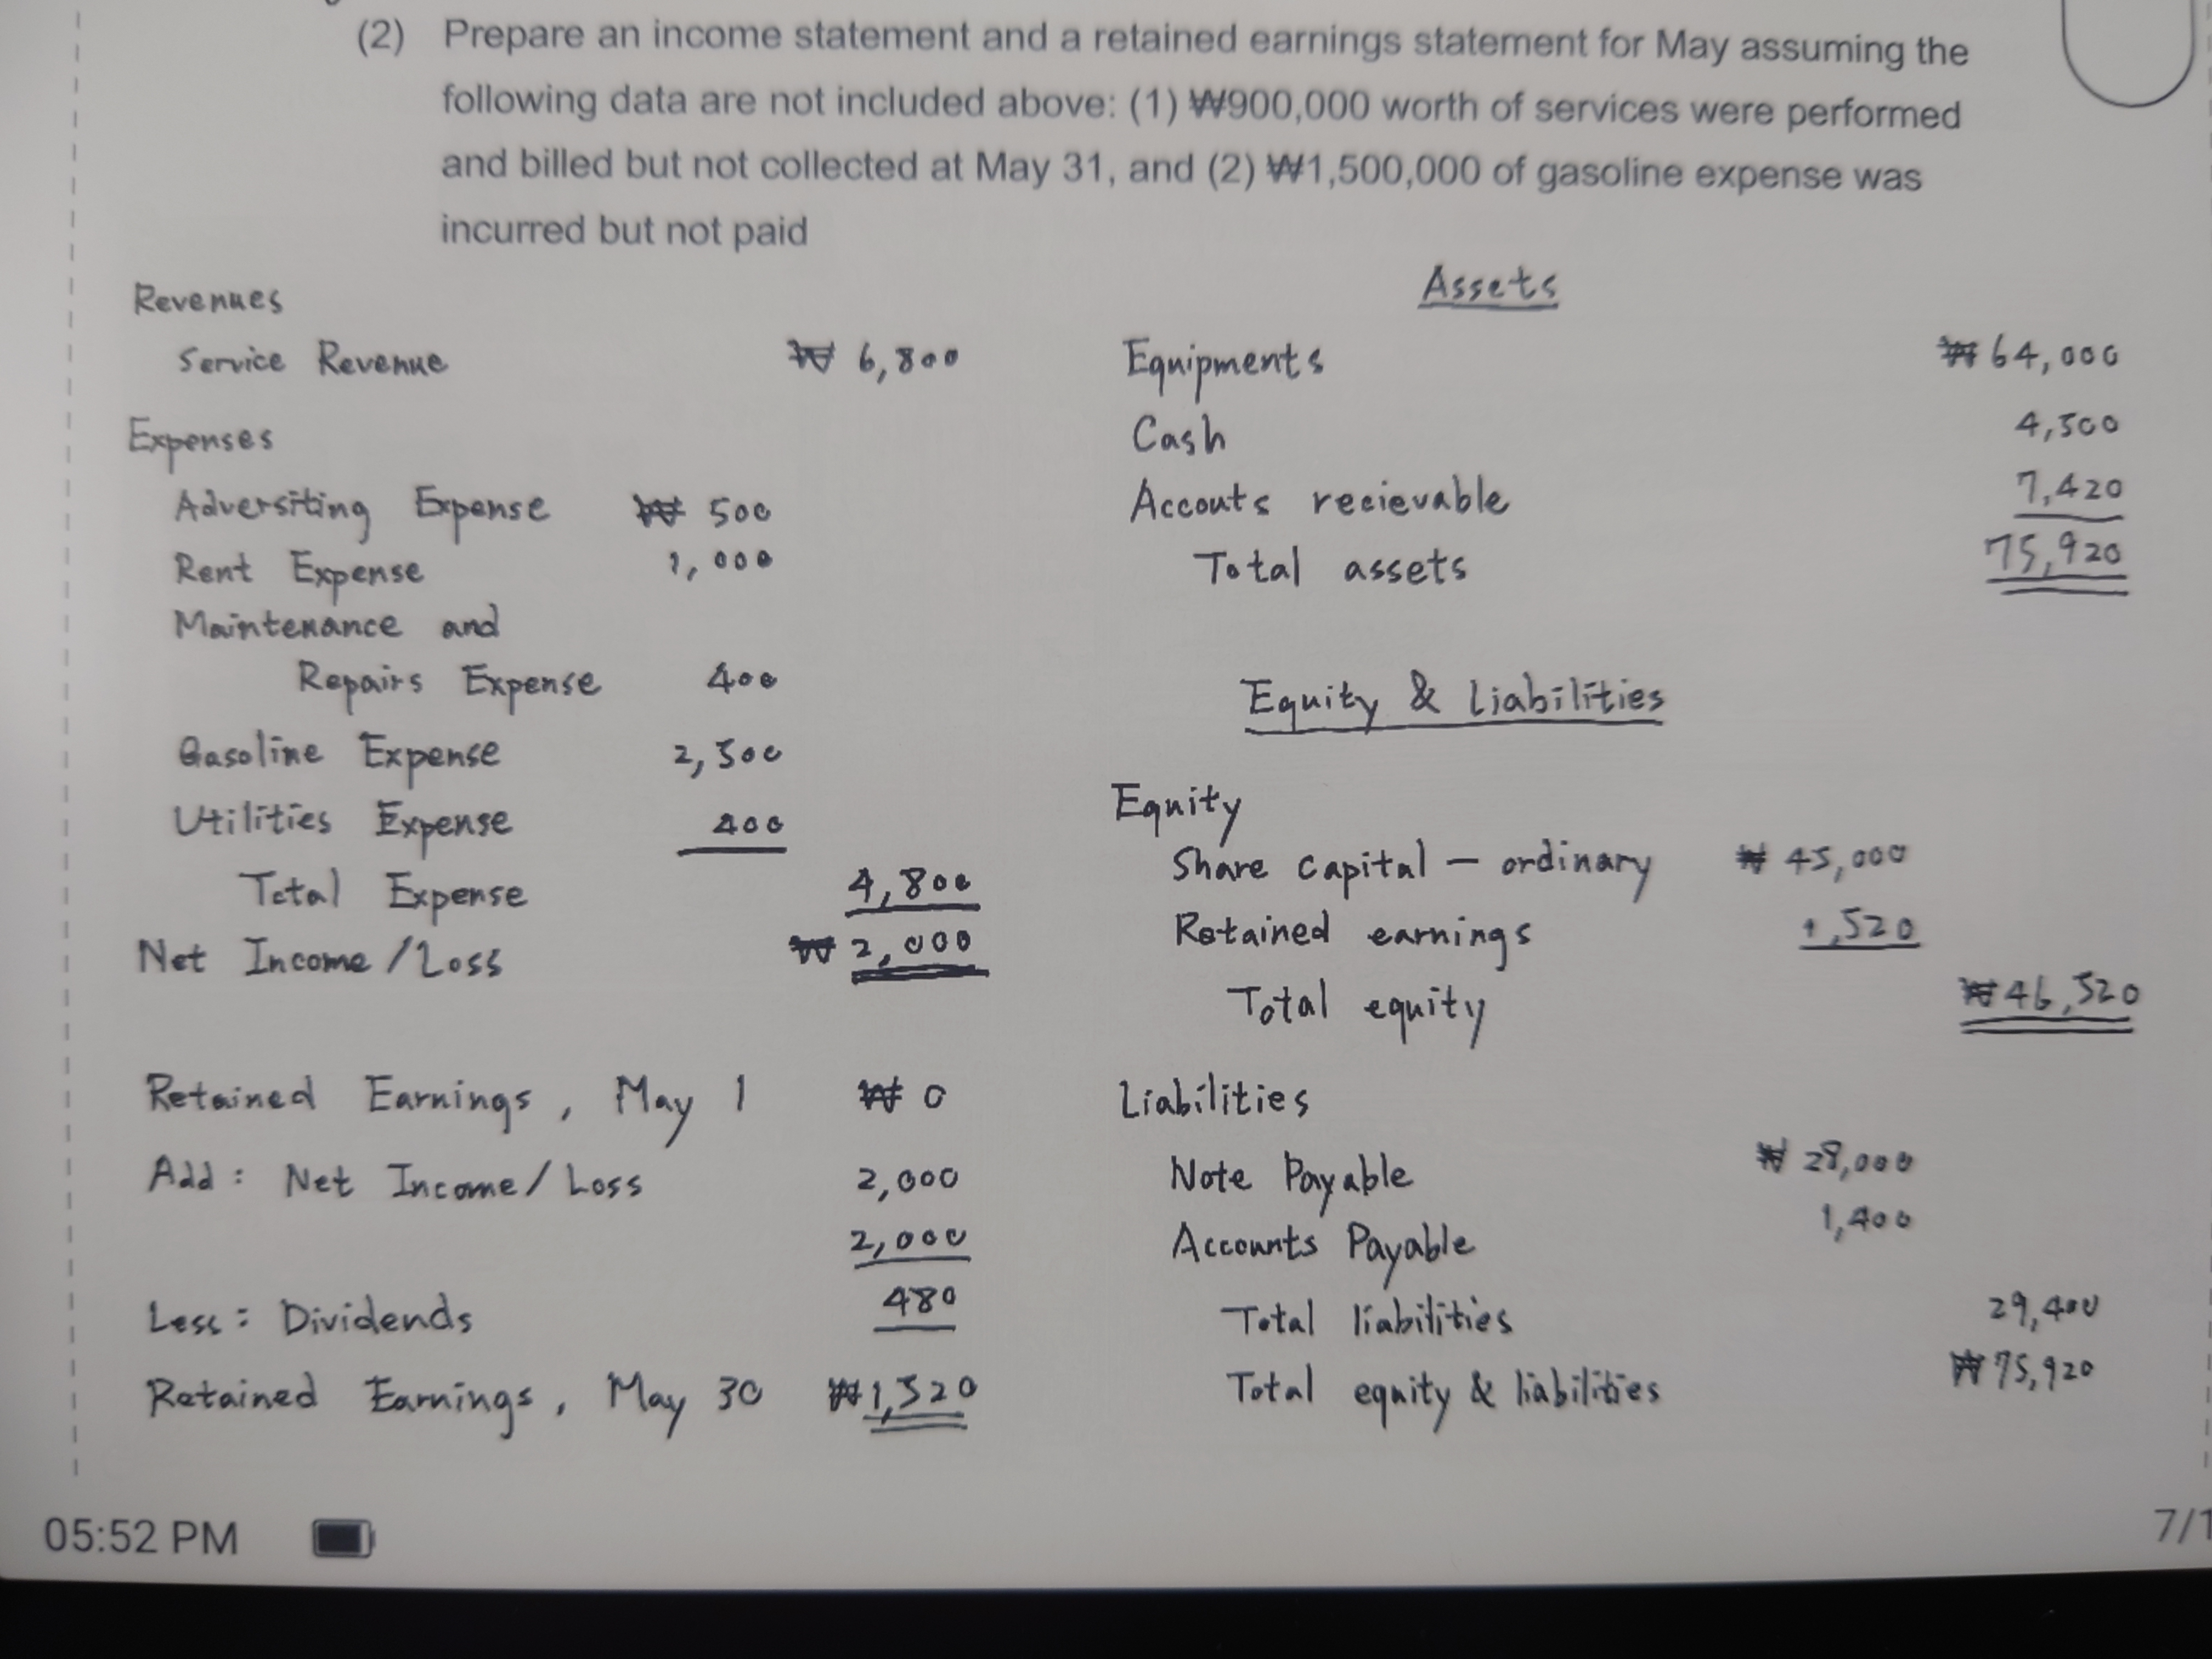 (2) Prepare an income statement and a retained earnings statement for May assuming the
following data are not included above: (1) ₩900,000 worth of services were performed
and billed but not collected at May 31, and (2) ₩1,500,000 of gasoline expense was
incurred but not paid
Revenues
Service Revenue ₩ 6,800
Expenses
Adversiting Expense ₩ 500
Rent Expense 1,000
Maintenance and
Repairs Expense 400
Gasoline Expense 2,500
Utilities Expense 400
Total Expense 4,800
Net Income/Loss ₩ 2,000
Retained Earnings, May 1 ₩ 0
Add: Net Income/Loss 2,000
2,000
Less: Dividends 480
Retained Earnings, May 30 ₩1,520
Assets
Equipments ₩64,000
Cash 4,500
Accouts recievable 7,420
Total assets 75,920
Equity & Liabilities
Equity
Share capital – ordinary ₩ 45,000
Retained earnings 1,520
Total equity ₩46,520
Liabilities
Note Payable ₩ 28,000
Accounts Payable 1,400
Total liabilities 29,400
Total equity & liabilities ₩75,920
05:52 PM
7/1